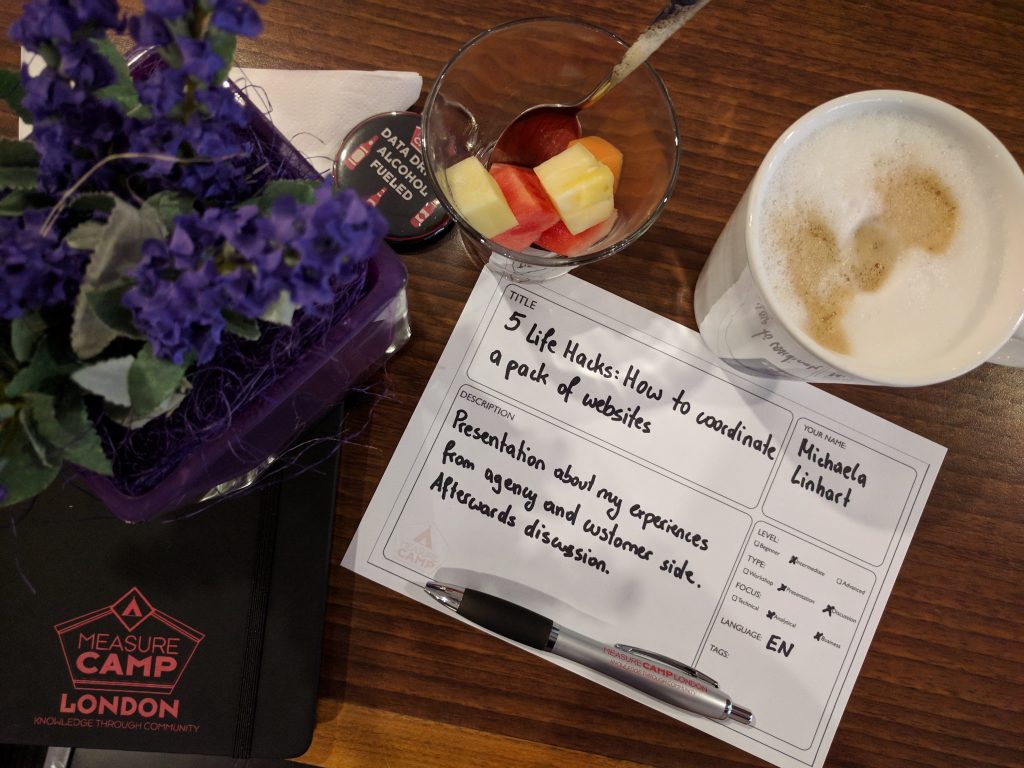 DATA DRI
ALCOHOL
FUELED
TITLE
5 Life Hacks: How to coordinate
a pack of websites
DESCRIPTION
Presentation about my experiences
from agency and customer side.
Afterwards discussion.
YOUR NAME:
Michaela
Linhart
LEVEL:
Beginner Intermediate Advanced
TYPE:
Workshop Presentation Discussion
FOCUS:
Technical Analytical Business
LANGUAGE: EN
TAGS:
MEASURE
CAMP
MEASURE CAMP LONDON
KNOWLEDGE THROUGH COMMUNITY
MEASURE
CAMP
LONDON
KNOWLEDGE THROUGH COMMUNITY